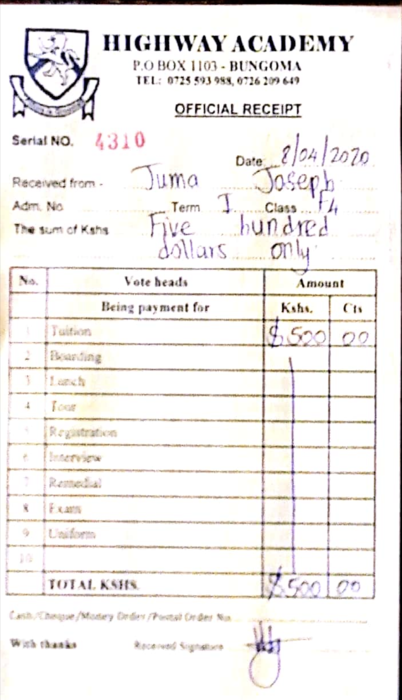 HIGHWAY ACADEMY
P.O BOX 1103 - BUNGOMA
TEL: 0725 593 988, 0726 209 649
OFFICIAL RECEIPT
Serial NO. 4310
Date 8/04/2020
Received from - Juma Joseph
Adm. No. Term I Class F4
The sum of Kshs Five hundred
dollars only
No. Vote heads Amount
Being payment for Kshs. Cts
1 Tuition $500 00
2 Boarding
3 Lunch
4 Tour
5 Registration
6 Interview
7 Remedial
8 Exam
9 Uniform
10
TOTAL KSHS. $500 00
Cash/Cheque/Money Order/Postal Order No.
With thanks Received Signature